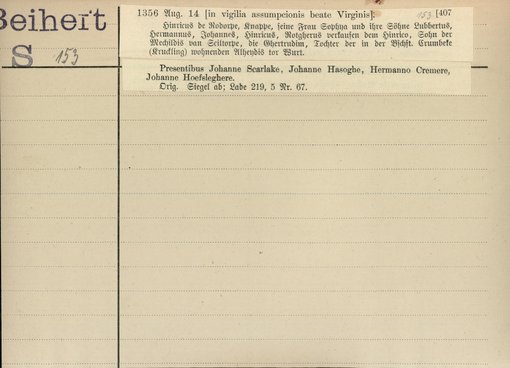 Beiheft
S 153
1356 Aug. 14 [in vigilia assumpcionis beate Virginis]. 153 [407
Hinricus de Rodorpe, Knappe, seine Frau Sophya und ihre Söhne Lubbertus,
Hermannus, Johannes, Hinricus, Rotgherus verkaufen dem Hinrico, Sohn der
Mechildis van Seistorpe, die Ghertrudim, Tochter der in der Bschft. Crumbeke
(Kruckling) wohnenden Alheydis tor Wurt.
Presentibus Johanne Scarlake, Johanne Hasoghe, Hermanno Cremere,
Johanne Hoefsleghere.
Orig. Siegel ab; Lade 219, 5 Nr. 67.